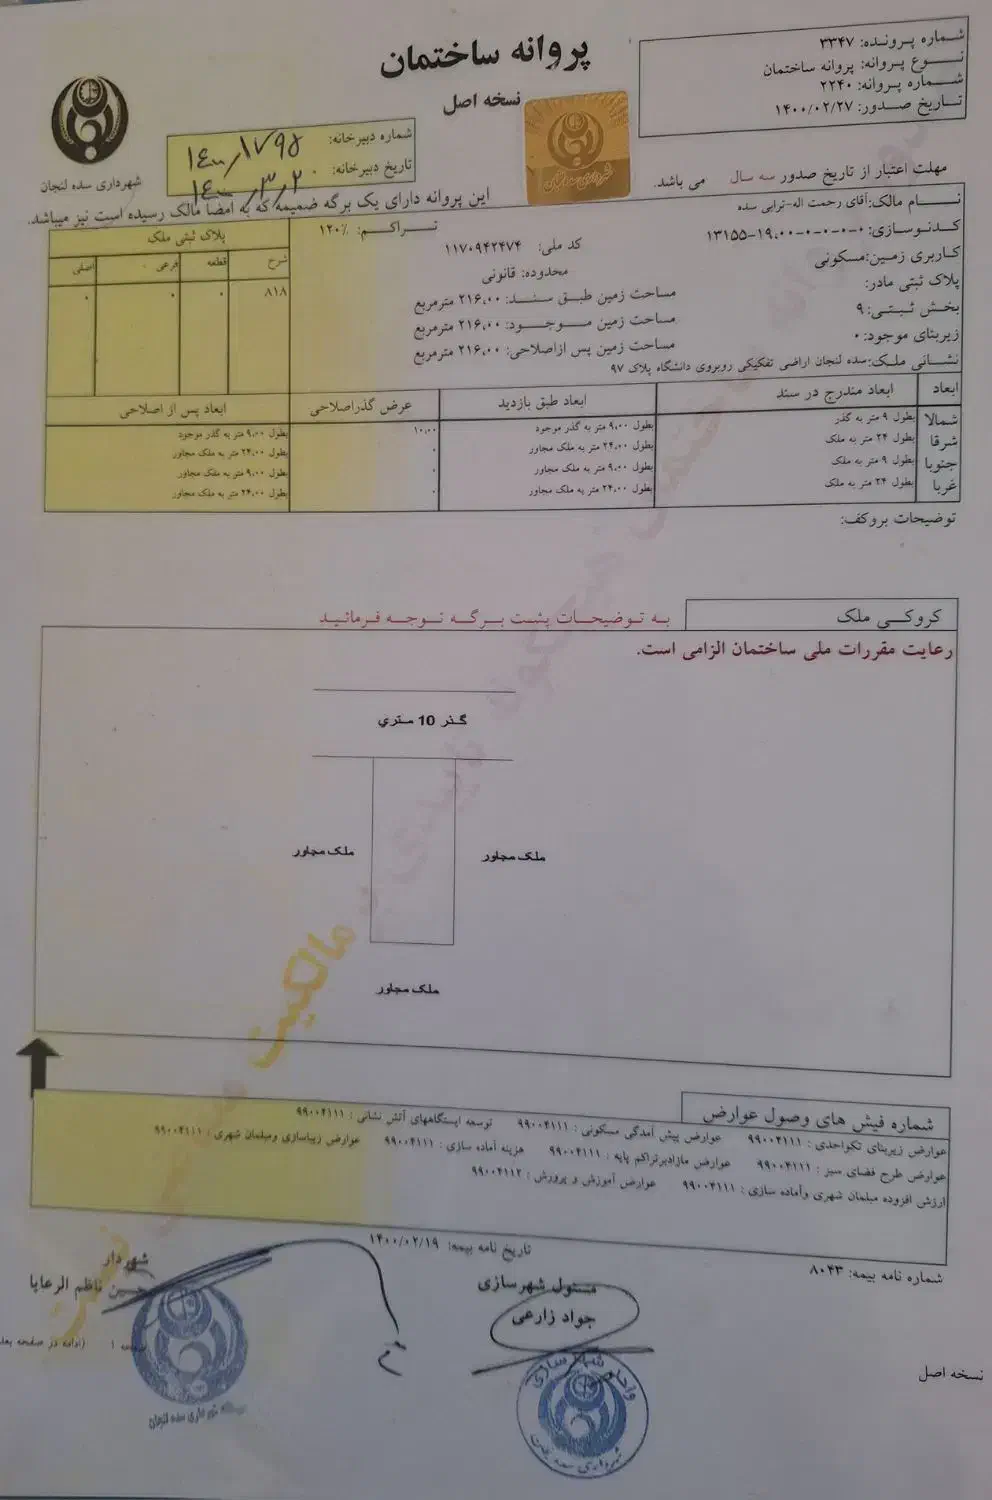 پروانه ساختمان
نسخه اصل
شماره پرونده: ۳۳۴۷
نوع پروانه: پروانه ساختمان
شماره پروانه: ۲۲۴۰
تاریخ صدور: ۱۴۰۰/۰۲/۲۷
شهرداری سده لنجان
شماره دبیرخانه: ۱۴۰۰/۱۷۹۵
تاریخ دبیرخانه: ۱۴۰۰/۳/۲۰
شهرداری سده لنجان
مهلت اعتبار از تاریخ صدور سه سال می باشد.
این پروانه دارای یک برگه ضمیمه که به امضا مالک رسیده است نیز میباشد.
نام مالک: آقای رحمت اله-ترابی سده
کدنوسازی: ۰-۰-۰-۰-۱۹،۰۰-۱۳۱۵۵
کاربری زمین: مسکونی
پلاک ثبتی مادر:
بخش ثبتی: ۹
زیربنای موجود: ۰
نشانی ملک: سده لنجان اراضی تفکیکی روبروی دانشگاه پلاک ۹۷
تراکم: ۱۲۰٪
کد ملی: ۱۱۷۰۹۴۲۴۷۴
محدوده: قانونی
مساحت زمین طبق سند: ۲۱۶،۰۰ مترمربع
مساحت زمین موجود: ۲۱۶،۰۰ مترمربع
مساحت زمین پس ازاصلاحی: ۲۱۶،۰۰ مترمربع
پلاک ثبتی ملک
شرح قطعه فرعی اصلی
۸۱۸ ۰ ۰ ۰
ابعاد ابعاد مندرج در سند ابعاد طبق بازدید عرض گذراصلاحی ابعاد پس از اصلاحی
شمالا بطول ۹ متر به گذر بطول ۹،۰۰ متر به گذر موجود ۱۰،۰۰ بطول ۹،۰۰ متر به گذر موجود
شرقا بطول ۲۴ متر به ملک بطول ۲۴،۰۰ متر به ملک مجاور ۰ بطول ۲۴،۰۰ متر به ملک مجاور
جنوبا بطول ۹ متر به ملک بطول ۹،۰۰ متر به ملک مجاور ۰ بطول ۹،۰۰ متر به ملک مجاور
غربا بطول ۲۴ متر به ملک بطول ۲۴،۰۰ متر به ملک مجاور ۰ بطول ۲۴،۰۰ متر به ملک مجاور
توضیحات بروکف:
کروکی ملک
به توضیحات پشت برگه توجه فرمائید
رعایت مقررات ملی ساختمان الزامی است.
گذر 10 متري
ملک مجاور
ملک مجاور
ملک مجاور
مالکیت
شماره فیش های وصول عوارض
عوارض زیربنای تکواحدی : ۹۹۰۰۴۱۱۱ عوارض پیش آمدگی مسکونی : ۹۹۰۰۴۱۱۱ توسعه ایستگاههای آتش نشانی : ۹۹۰۰۴۱۱۱
عوارض طرح فضای سبز : ۹۹۰۰۴۱۱۱ عوارض مازادبرتراکم پایه : ۹۹۰۰۴۱۱۱ هزینه آماده سازی : ۹۹۰۰۴۱۱۱ عوارض زیباسازی ومبلمان شهری : ۹۹۰۰۴۱۱۱
ارزش افزوده مبلمان شهری وآماده سازی : ۹۹۰۰۴۱۱۱ عوارض آموزش و پرورش : ۹۹۰۰۴۱۱۲
شماره نامه بیمه: ۸۰۴۳
تاریخ نامه بیمه: ۱۴۰۰/۰۲/۱۹
مسئول شهرسازی
جواد زارعی
شهردار
حسین ناظم الرعایا
صفحه ۱ (ادامه در صفحه بعد
نسخه اصل
واحد شهرسازی